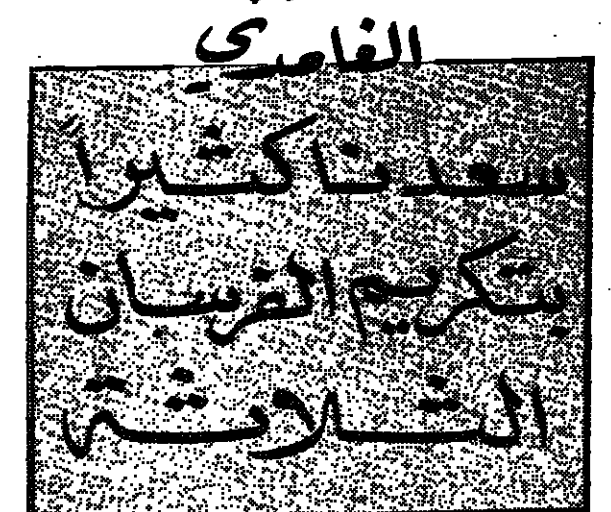 الغامدي
سعدنا كثيراً
بتكريم الفرسان
الثلاثة